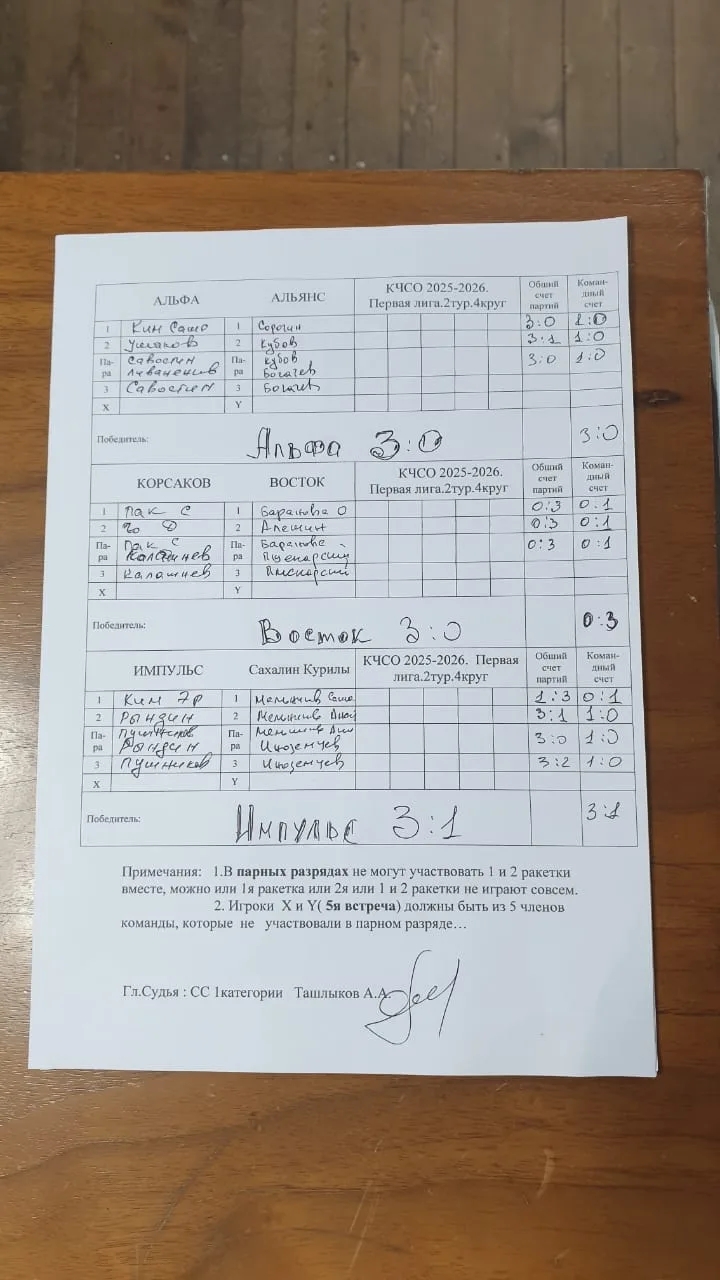 АЛЬФА АЛЬЯНС КЧСО 2025-2026. Первая лига.2тур.4круг Общий счет партий Коман-дный счет
1 Ким Сашо 1 Сорокин 3:0 1:0
2 Ушаков 2 Кубов 3:1 1:0
Па-ра Савостин Па-ра Кубов Богачев 3:0 1:0
3 Савостин 3 Богачев
X Y
Победитель: Альфа 3:0 3:0
КОРСАКОВ ВОСТОК КЧСО 2025-2026. Первая лига.2тур.4круг Общий счет партий Коман-дный счет
1 Пак С 1 Баранова О 0:3 0:1
2 2 Алешин 0:3 0:1
Па-ра Пак С Калашнев Па-ра Баранове 0:3 0:1
3 Калашнев 3
X Y
Победитель: Восток 3:0 0:3
ИМПУЛЬС Сахалин Курилы КЧСО 2025-2026. Первая лига.2тур.4круг Общий счет партий Коман-дный счет
1 Ким Эр 1 1:3 0:1
2 Рындин 2 3:1 1:0
Па-ра Пушников Рындин Па-ра Иноземцев 3:0 1:0
3 Пушников 3 Иноземцев 3:2 1:0
X Y
Победитель: Импульс 3:1 3:1
Примечания: 1.В парных разрядах не могут участвовать 1 и 2 ракетки
вместе, можно или 1я ракетка или 2я или 1 и 2 ракетки не играют совсем.
2. Игроки X и Y( 5я встреча) должны быть из 5 членов
команды, которые не участвовали в парном разряде…
Гл.Судья : СС 1категории Ташлыков А.А.